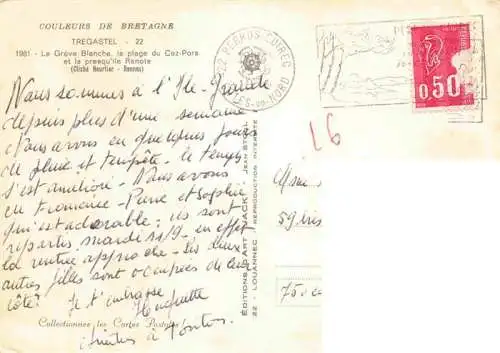 COULEURS DE BRETAGNE
TREGASTEL - 22
1981 - La Grève Blanche, la plage du Coz-Pors
et la presqu'île Renote
(Cliché Heurtier - Rennes)
Nous sommes à l'Ile-Grande
depuis plus d'une semaine
Nous avons eu quelques jours
de pluie et tempête - le temps
s'est amélioré - Nous avons
eu Françoise - Pierre et Sophie
qui est adorable ; ils sont
repartis mardi 11/9 - en effet
la rentrée approche - Les deux
autres filles sont occupées de leur
côté. Je t'embrasse
Huguette
Collectionnez les Cartes Postales
Amitiés à
22 PERROS-GUIREC
CÔTES-DU-NORD
0,50
16
ÉDITIONS D'ART "JACK"
22 - LOUANNEC
JEAN STOLL
REPRODUCTION INTERDITE
59
750